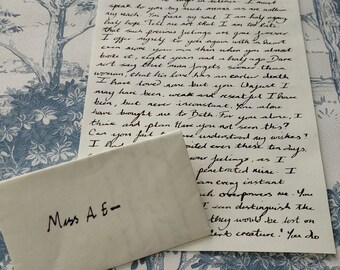 listen no longer in silence. I must
speak to you by such means as are within
my reach. You pierce my soul. I am half agony
half hope. Tell me not that I am too late
that such precious feelings are gone forever
I offer myself to you again with a heart
even more your own than when you almost
broke it, eight years and a half ago. Dare
not say that man forgets sooner than
woman, that his love has an earlier death
I have loved none but you. Unjust I
may have been, weak and resentful I have
been, but never inconstant. You alone
have brought me to Bath. For you alone, I
think and plan. Have you not seen this?
Can you fail to have understood my wishes?
I had waited even these ten days
your feelings, as I
penetrated mine. I
every instant
overpowers me. You
I can distinguish the
they would be lost on
creature! You do
Miss A E-